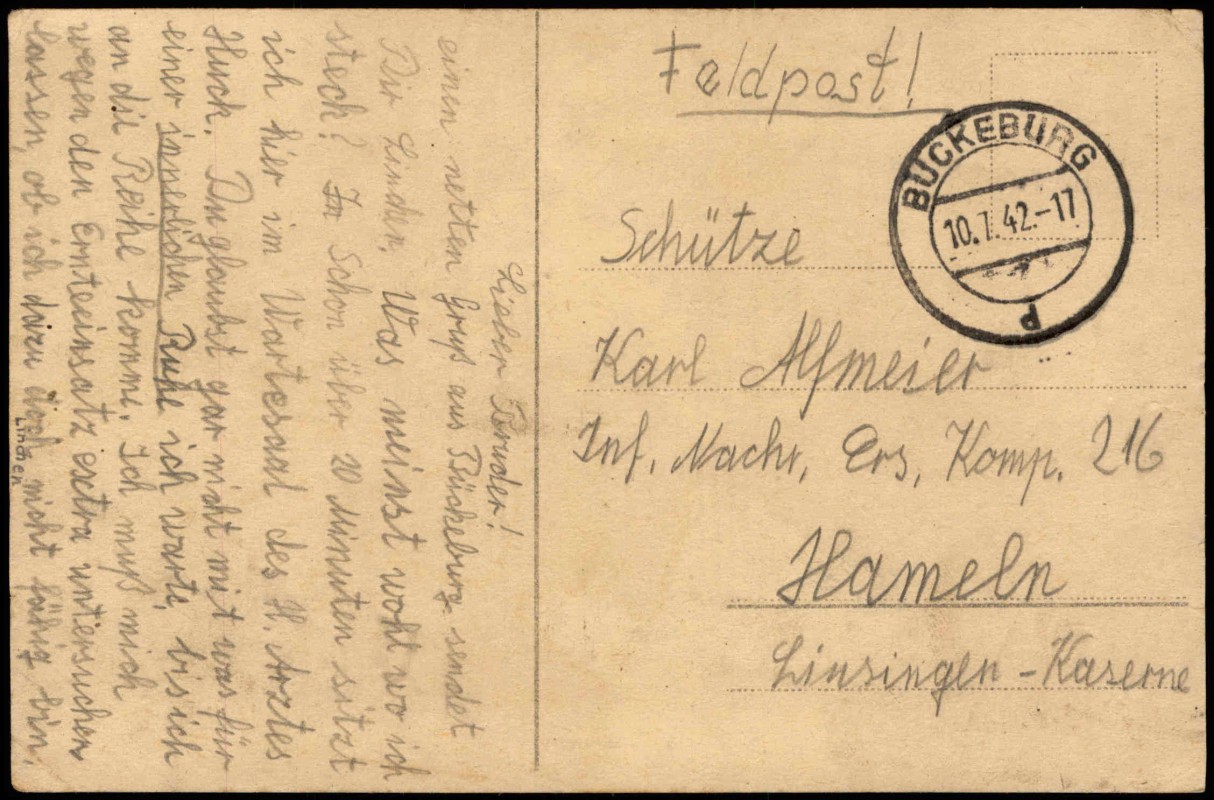 Feldpost!
BÜCKEBURG
10.7.42.-17
Schütze
Karl Alfmeier
Inf. Nachr. Ers. Komp. 216
Hameln
Linsingen-Kaserne
Lieber Bruder!
einen netten Gruß aus Bückeburg sendet
Dir Linchen. Was meinst wohl wo ich
steck? Schon über 20 Minuten sitzt
ich hier im Wartesaal des H. Arztes
Huck. Du glaubst gar nicht mit was für
einer innerlichen Ruhe ich warte, bis ich
an die Reihe komme. Ich muß mich
wegen den Ernteeinsatz extra untersuchen
lassen, ob ich dazu doch nicht fähig bin.
Linchen